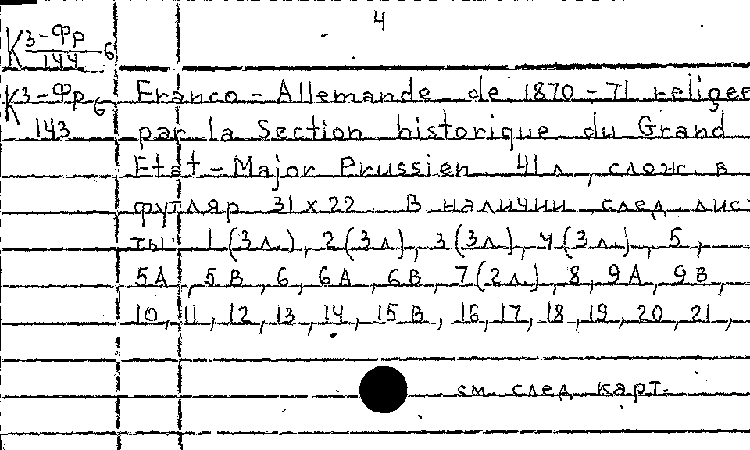 4
К 3-Фр 6
144
К 3-Фр 6
143
Franco-Allemande de 1870-71 religee
par la Section historique du Grand
Etat-Major Prussien 41 л, слож в
футляр 31 x 22 В наличии след лис-
ты 1 (3 л.), 2 (3 л), 3 (3 л), 4 (3 л.), 5,
5А, 5В, 6, 6А, 6В, 7 (2 л.), 8, 9А, 9В,
10, 11, 12, 13, 14, 15 В, 16, 17, 18, 19, 20, 21,
см. след карт.